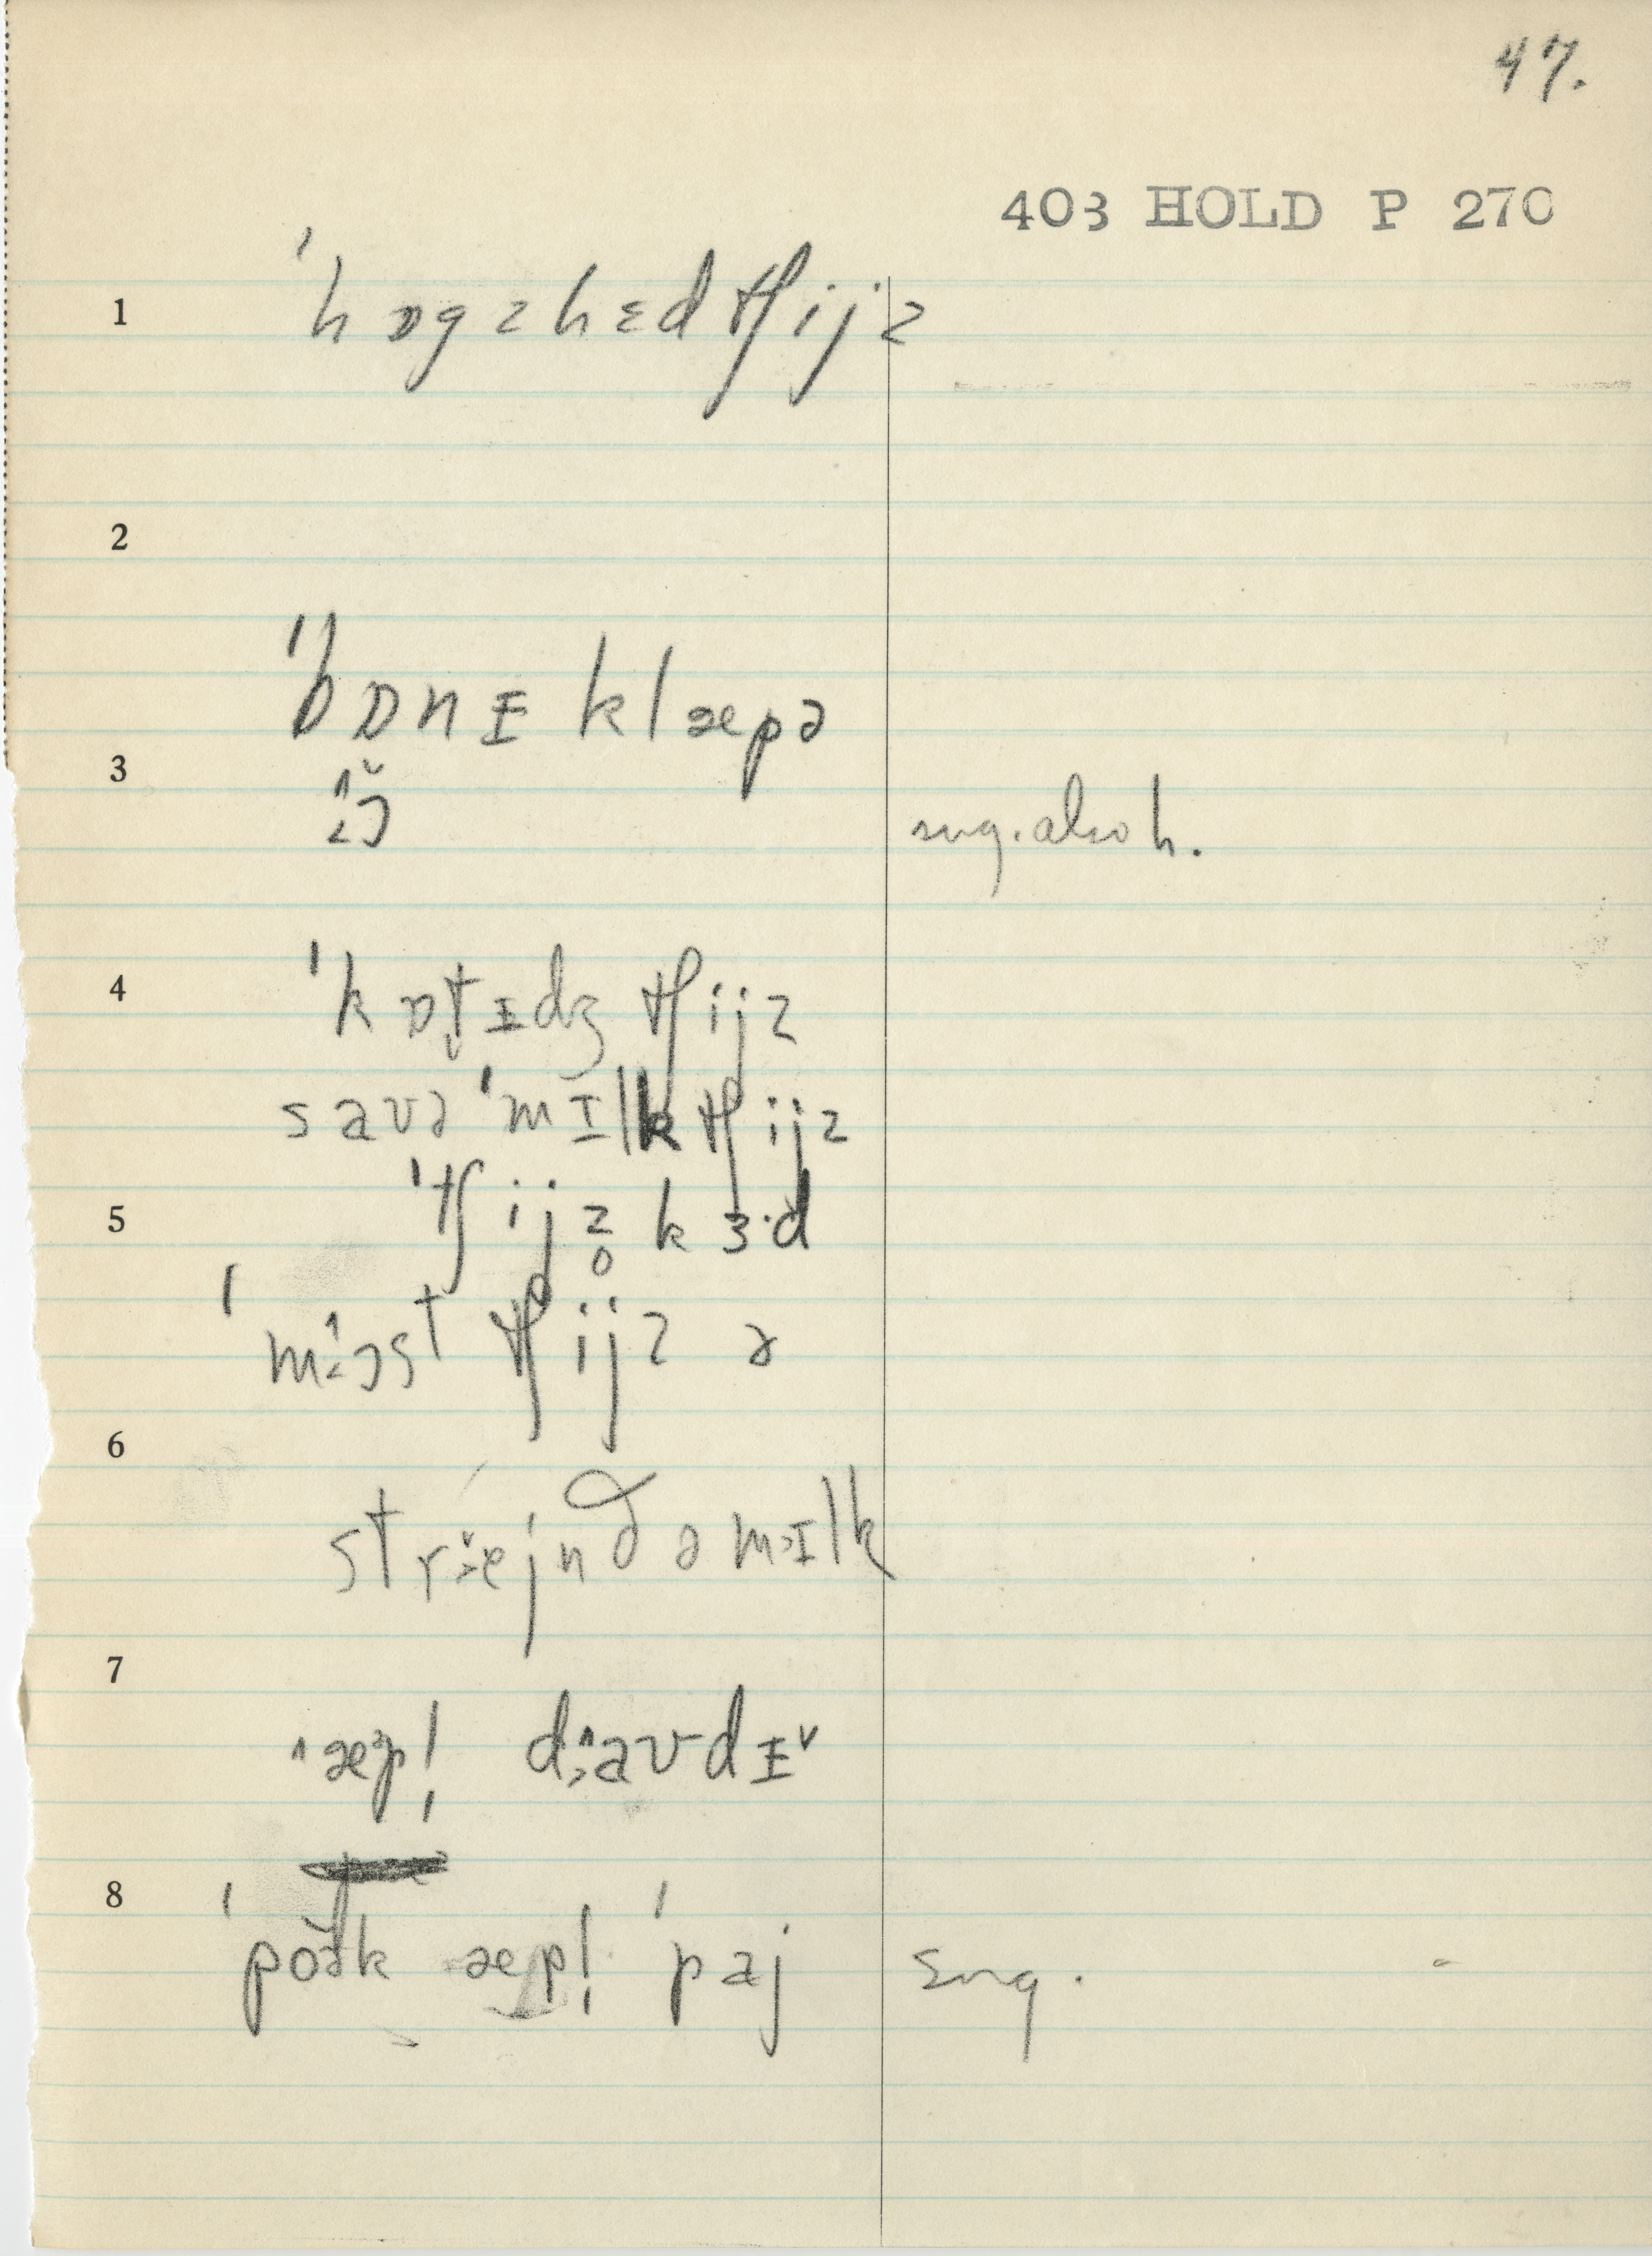 47.
403 HOLD P 270
1 ˈhɒgzhɛdtʃijz
2
ˈbɒnɪ klæpə
3
sug. also h.
4 ˈkɒt̬ɪdʒ tʃijz
savə ˈmɪlk tʃijz
5 ˈtʃijz̥ kɜ·d
ˈmɔst tʃijz ə
6
strejnd ə mɪlk
7
æpl̩ davdɪ
8
ˈpoək æpl̩ ˈpaj sug.